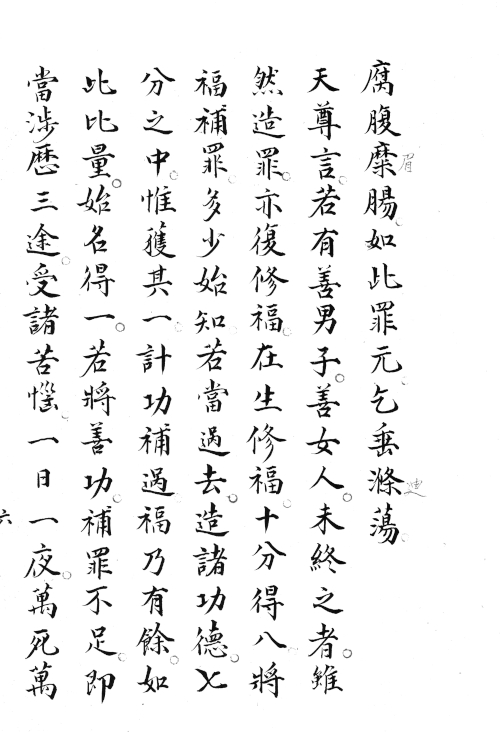 腐腹糜腸如此罪元乞垂滌蕩
眉
迪
天尊言若有善男子善女人未終之者雖
然造罪亦復修福在生修福十分得八將
福補罪多少始知若當過去造諸功德七
分之中惟獲其一計功補過福乃有餘如
此比量始名得一若將善功補罪不足即
當涉歷三途受諸苦惱一日一夜萬死萬
六